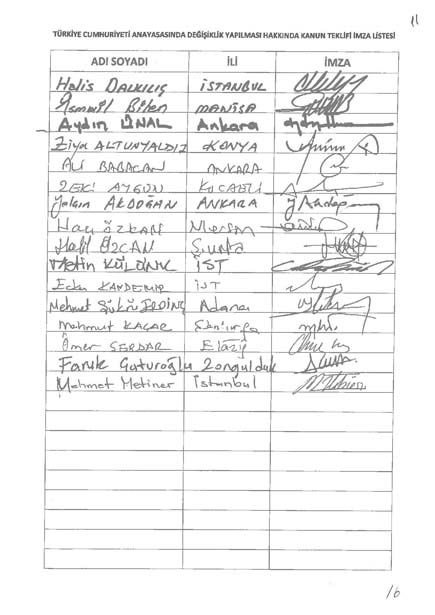 11
TÜRKİYE CUMHURİYETİ ANAYASASINDA DEĞİŞİKLİK YAPILMASI HAKKINDA KANUN TEKLİFİ İMZA LİSTESİ
ADI SOYADI İLİ İMZA
Halis DALKILIÇ İSTANBUL
İsmail Bilen MANİSA
Aydın ÜNAL Ankara
Ziya ALTUNYALDIZ KONYA
ALİ BABACAN ANKARA
ZEKİ AYGÜN KOCAELİ
Yalçın AKDOĞAN ANKARA
Hacı ÖZKAN Mersin
Halil ÖZCAN Ş.Urfa
Metin KÜLÜNK İST
KANDEMİR İST
Mehmet Şükrü ERDİNÇ Adana
Mahmut KAÇAR Şanlıurfa
Ömer SERDAR Elazığ
Faruk Çaturoğlu Zonguldak
Mehmet Metiner İstanbul
16